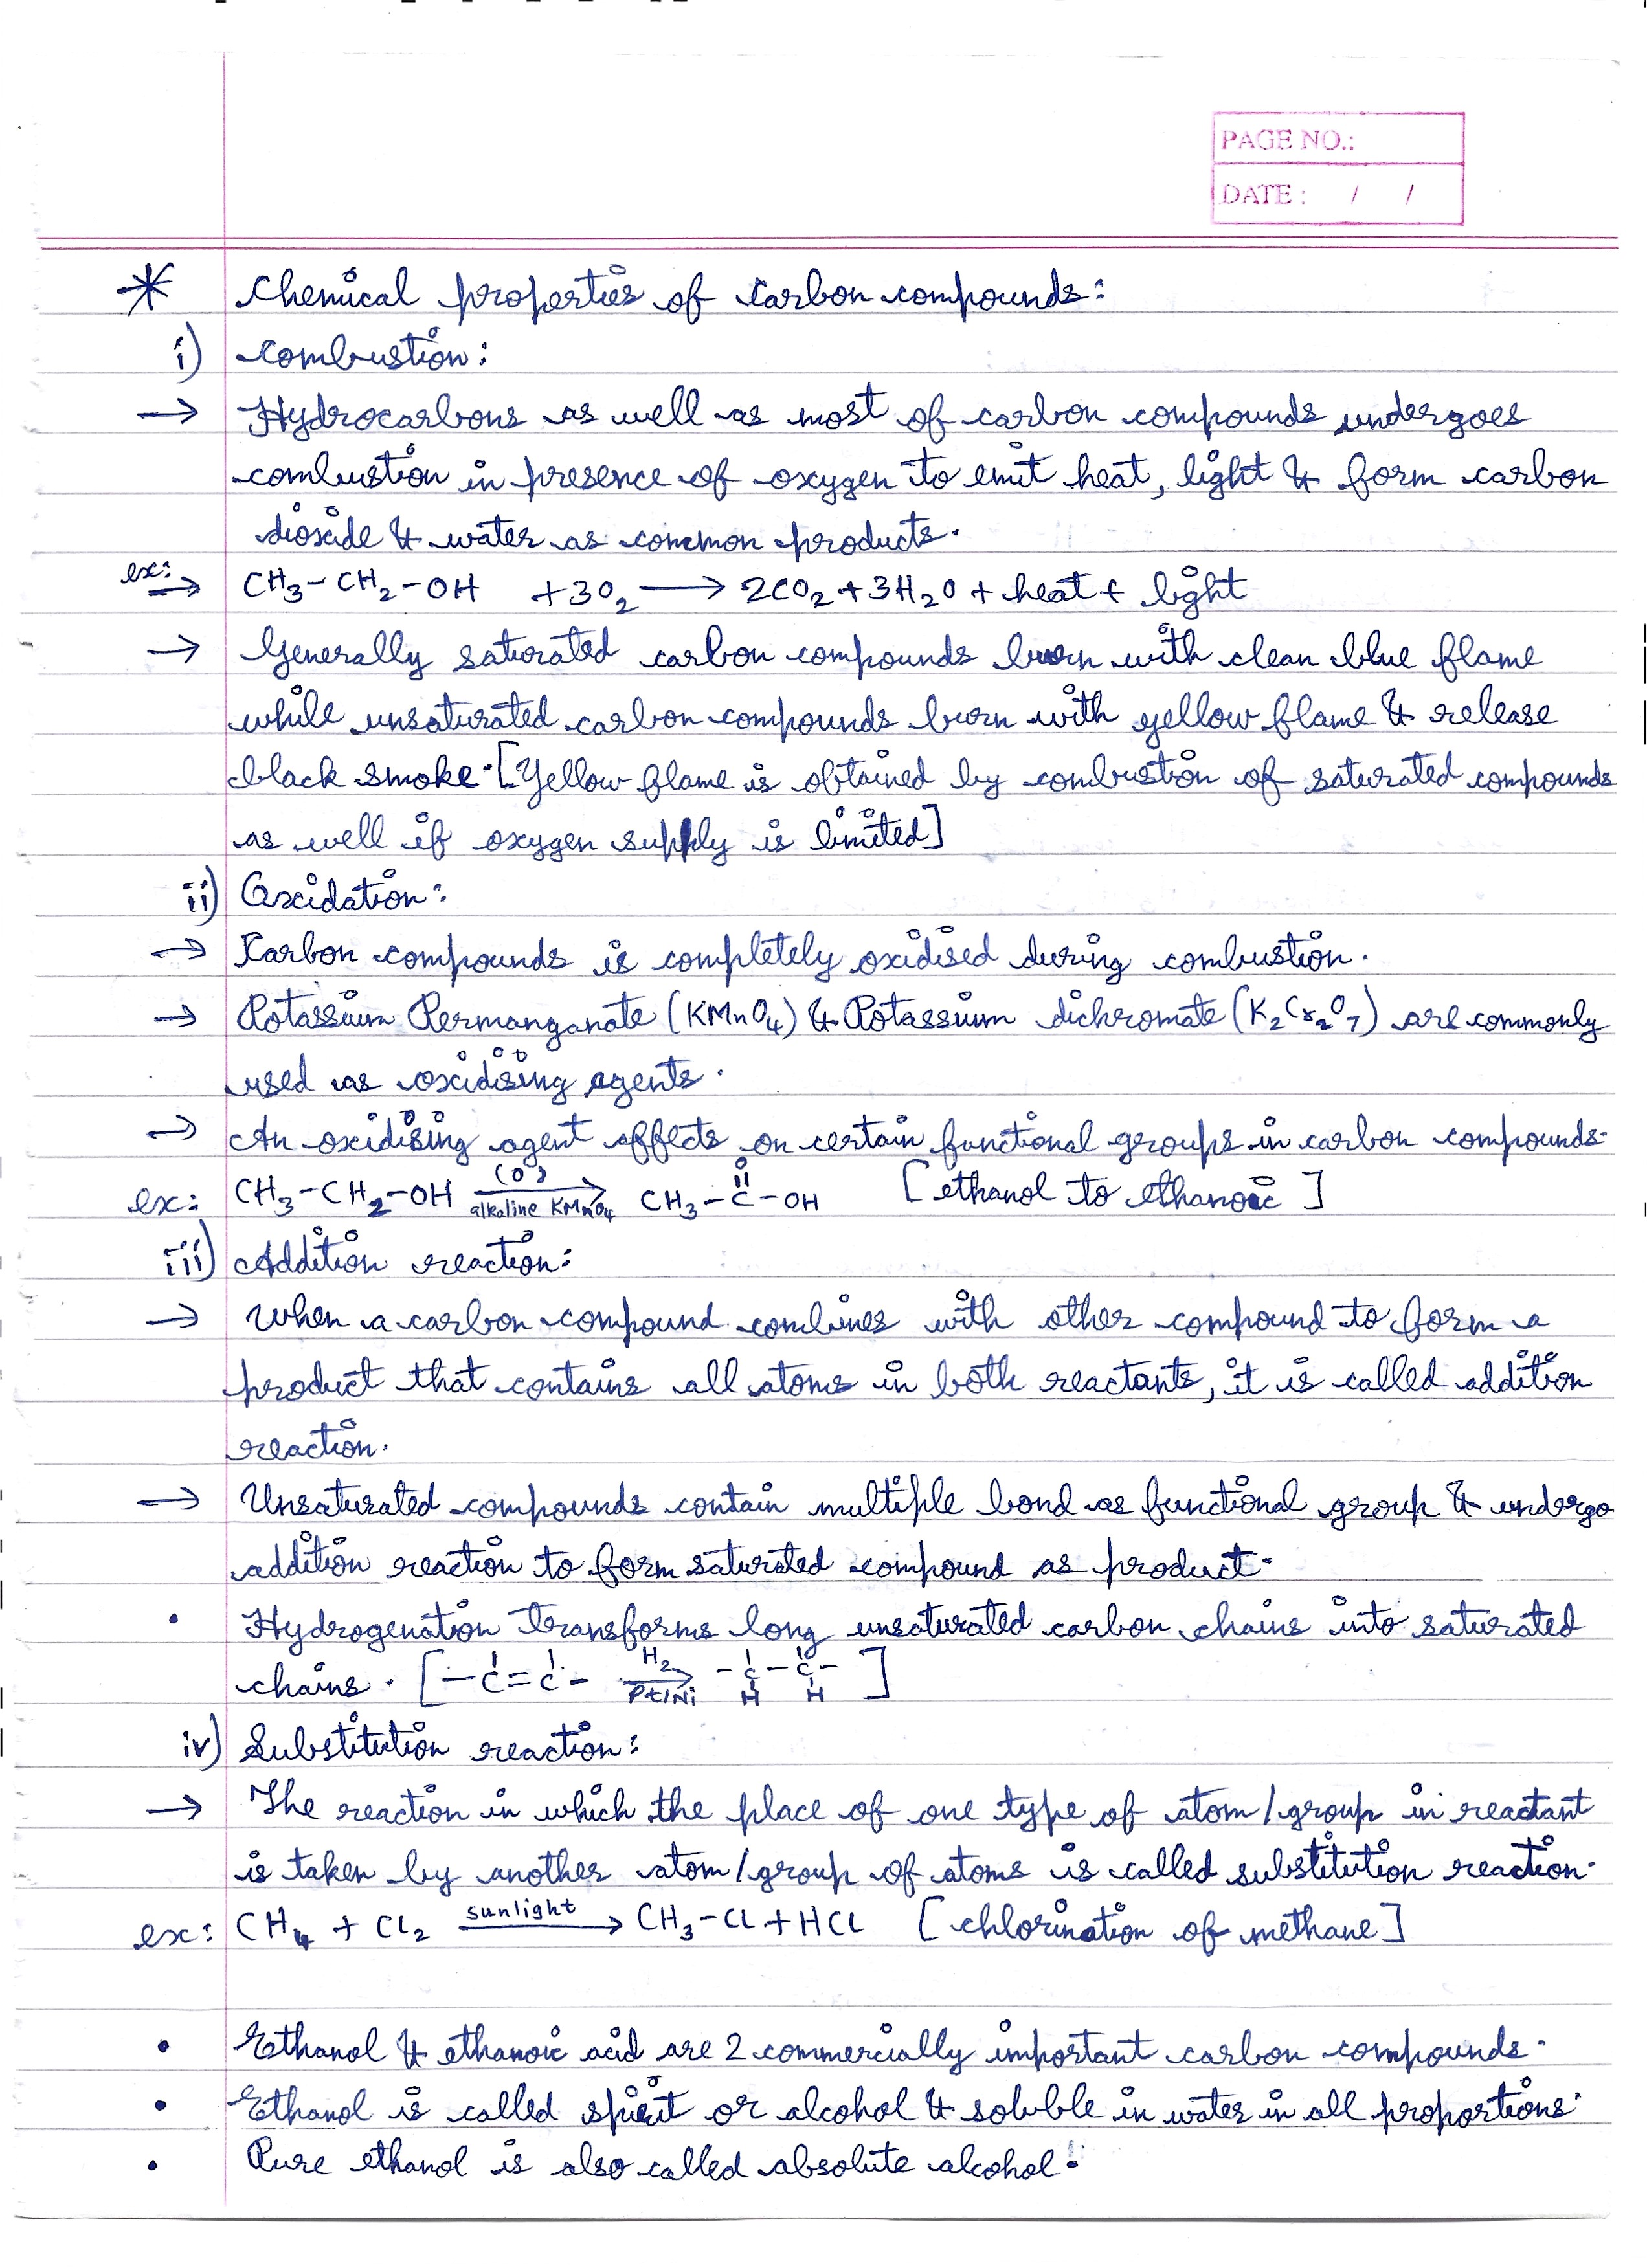 PAGE NO.:
DATE : / /
* Chemical properties of Carbon compounds:
i) Combustion:
→ Hydrocarbons as well as most of carbon compounds undergoes
combustion in presence of oxygen to emit heat, light & form carbon
dioxide & water as common products.
ex: → CH₃-CH₂-OH + 3O₂ ⟶ 2CO₂ + 3H₂O + heat + light
→ Generally saturated carbon compounds burn with clean blue flame
while unsaturated carbon compounds burn with yellow flame & release
black smoke. [Yellow flame is obtained by combustion of saturated compounds
as well if oxygen supply is limited]
ii) Oxidation:
→ Carbon compounds is completely oxidised during combustion.
→ Potassium Permanganate (KMnO₄) & Potassium dichromate (K₂Cr₂O₇) are commonly
used as oxidising agents.
→ An oxidising agent affects on certain functional groups in carbon compounds.
(O) O
ex: CH₃-CH₂-OH ⟶ CH₃-C-OH [ethanol to ethanoic]
alkaline KMnO₄
iii) Addition reaction:
→ When a carbon compound combines with other compound to form a
product that contains all atoms in both reactants, it is called addition
reaction.
→ Unsaturated compounds contain multiple bond as functional group & undergo
addition reaction to form saturated compound as product.
• Hydrogenation transforms long unsaturated carbon chains into saturated
chains. [-C=C- H₂ ⟶ Pt/Ni -C-C- H H]
iv) Substitution reaction:
→ The reaction in which the place of one type of atom/group in reactant
is taken by another atom/group of atoms is called substitution reaction.
ex: CH₄ + Cl₂ sunlight ⟶ CH₃-Cl + HCl [chlorination of methane]
• Ethanol & ethanoic acid are 2 commercially important carbon compounds.
• Ethanol is called spirit or alcohol & soluble in water in all proportions.
• Pure ethanol is also called absolute alcohol.